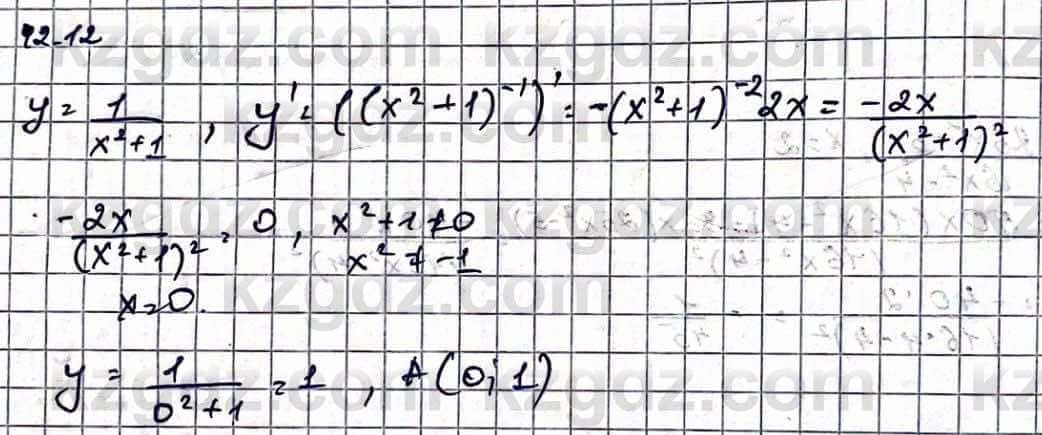 42-12
y = 1/(x²+1) , y' = ((x²+1)⁻¹)' = -(x²+1)⁻² 2x = -2x/(x²+1)²
-2x/(x²+1)² = 0 , x²+1≠0
x² ≠ -1
x=0.
y = 1/(0²+1) = 1 , A(0; 1)
kzgdz.com